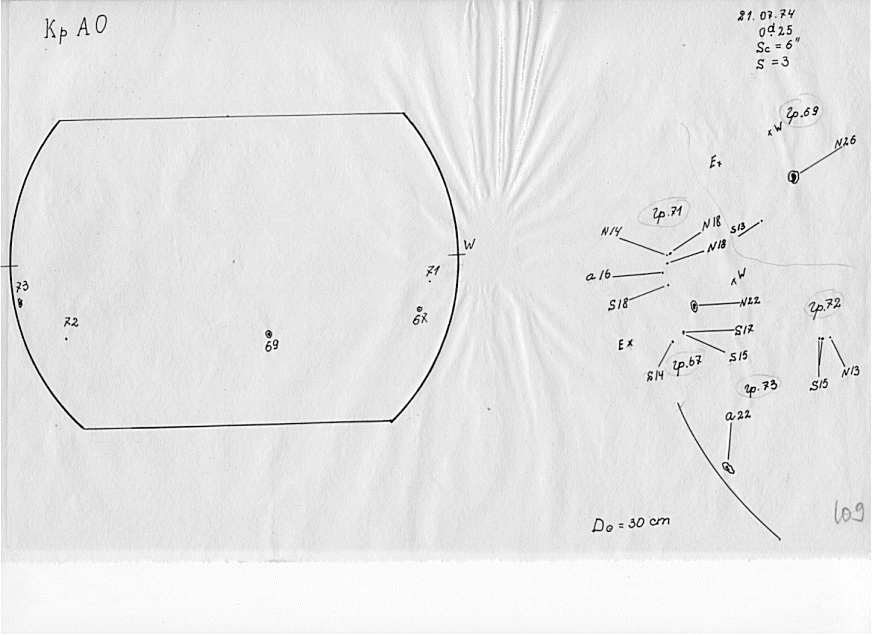 Кр АО
21.07.74
0d.25
Sc = 6"
S = 3
гр.69
W
N26
E
гр.71
N14
N18
S13
N18
a16
W
S18
N22
гр.72
S17
E
S15
S14
гр.67
S15
N13
гр.73
a22
W
73
71
67
72
69
D⊙ = 30 cm
109